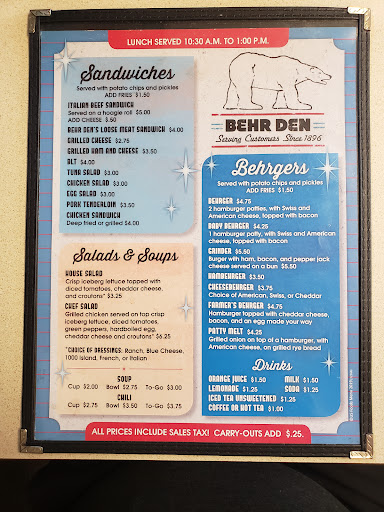 LUNCH SERVED 10:30 A.M. TO 1:00 P.M.
Sandwiches
Served with potato chips and pickles
ADD FRIES $1.50
ITALIAN BEEF SANDWICH
Served on a hoagie roll $5.00
ADD CHEESE $.50
BEHR DEN'S LOOSE MEAT SANDWICH $4.00
GRILLED CHEESE $2.75
GRILLED HAM AND CHEESE $3.50
BLT $4.00
TUNA SALAD $3.00
CHICKEN SALAD $3.00
EGG SALAD $3.00
PORK TENDERLOIN $3.50
CHICKEN SANDWICH
Deep fried or grilled $4.00
Salads & Soups
HOUSE SALAD
Crisp iceberg lettuce topped with
diced tomatoes, cheddar cheese,
and croutons* $3.25
CHEF SALAD
Grilled chicken served on top crisp
iceberg lettuce, diced tomatoes,
green peppers, hardboiled egg,
cheddar cheese and croutons* $6.25
*CHOICE OF DRESSINGS: Ranch, Blue Cheese,
1000 Island, French, or Italian
SOUP
Cup $2.00 Bowl $2.75 To-Go $3.00
CHILI
Cup $2.75 Bowl $3.50 To-Go $3.75
BEHR DEN
Serving Customers Since 1896
Behrgers
Served with potato chips and pickles
ADD FRIES $1.50
BEHRGER $4.75
2 hamburger patties, with Swiss and
American cheese, topped with bacon
BABY BEHRGER $4.25
1 hamburger patty, with Swiss and American
cheese, topped with bacon
GRINDER $5.50
Burger with ham, bacon, and pepper jack
cheese served on a bun $5.50
HAMBURGER $3.50
CHEESEBURGER $3.75
Choice of American, Swiss, or Cheddar
FARMER'S BEHRGER $4.75
Hamburger topped with cheddar cheese,
bacon, and an egg made your way
PATTY MELT $4.25
Grilled onion on top of a hamburger, with
American cheese, on grilled rye bread
Drinks
ORANGE JUICE $1.50 MILK $1.50
LEMONADE $1.25 SODA $1.25
ICED TEA UNSWEETENED $1.25
COFFEE OR HOT TEA $1.00
ALL PRICES INCLUDE SALES TAX! CARRY-OUTS ADD $.25.